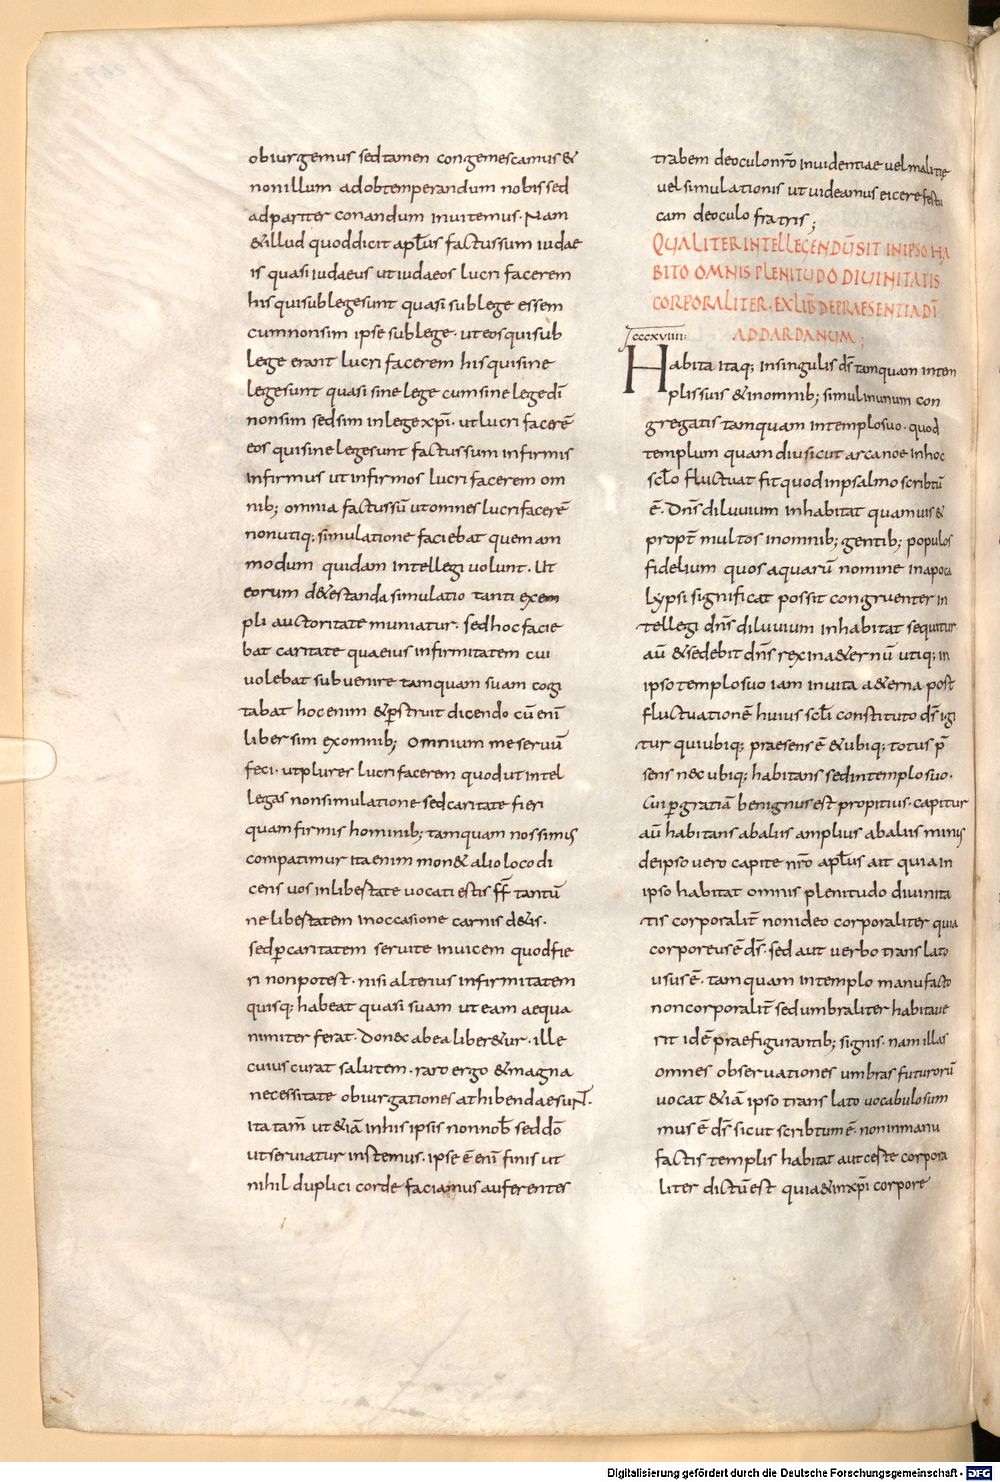 obiurgemus sed tamen congemescamus &
non illum ad obtemperandum nobis sed
ad pariter conandum inuitemus. Nam
& illud quod dicit apłus factus sum iudae
is quasi iudaeus ut iudaeos lucri facerem
his qui sub lege sunt quasi sub lege essem
cum non sim ipse sub lege. ut eos qui sub
lege erant lucri facerem his qui sine
lege sunt quasi sine lege cum sine lege dī
non sim sed sim in lege xp̄i. ut lucri facerē
eos qui sine lege sunt factus sum infirmis
infirmus ut infirmos lucri facerem om
nib; omnia factus sū ut omnes lucri facerē
non utiq; simulatione faciebat quem am
modum quidam intellegi uolunt. Ut
eorum d&estanda simulatio tanti exem
pli auctoritate muniatur. sed hoc facie
bat caritate qua eius infirmitatem cui
uolebat subuenire tamquam suam cogi
tabat hoc enim & p̄struit dicendo cū enī
liber sim ex omnib; omnium me seruū
feci. ut plures lucri facerem quod ut intel
legas non simulatione sed caritate fieri
quam firmis hominib; tamquam nos simus
compatimur ita enim mon& alio loco di
cens uos in libertate uocati estis ff̄ tantū
ne libertatem in occasione carnis d&is.
sed p caritatem seruite inuicem quod fie
ri non potest. nisi alterius infirmitatem
quisq; habeat quasi suam ut eam aequa
nimiter ferat. donec ab ea liber&ur. ille
cuius curat salutem. raro ergo & magna
necessitate obiurgationes athibendae sunt.
ita tam̄ ut &iā in his ipsis non nob̄ sed dō
ut seruiatur instemus. ipse ē enī finis ut
nihil duplici corde faciamus auferentes
trabem de oculo nr̄o inuidentiae uel malitię
uel simulationis ut uideamus eicere festu
cam de oculo fratris;
QUALITER INTELLEGENDŪ SIT IN IPSO HA
BITO OMNIS PLENITUDO DIUINITATIS
CORPORALITER. EX LIB̄ DE PRAESENTIA DĪ
AD DARDANUM;
cccxviiii.
Habita itaq; in singulis d̄s tamquam in tem
plis suis & in omnib; simul in unum con
gregatis tamquam in templo suo. quod
templum quam diu sicut arca noe in hoc
sc̄lo fluctuat fit quod in psalmo scribtū
ē. Dn̄s diluuium inhabitat quamuis &
propt̄ multos in omnib; gentib; populos
fidelium quos aquarū nomine in apoca
lypsi significat possit congruenter in
tellegi dn̄s diluuium inhabitat sequitur
aū & sedebit dn̄s rex in a&ernū utiq; in
ipso templo suo iam in uita a&erna post
fluctuationē huius sc̄li constituto d̄s igi
tur qui ubiq; praesens ē & ubiq; totus p̄
sens nec ubiq; habitans sed in templo suo.
Cui p gratiā benignus est propitius. capitur
aū habitans ab aliis amplius ab aliis minus
de ipso uero capite nr̄o apłus ait quia in
ipso habitat omnis plenitudo diuinita
tis corporalit̄ non ideo corporaliter quia
corporeus ē d̄s. sed aut uerbo translato
usus ē. tamquam in templo manu facto
non corporalit̄ sed umbraliter habitaue
rit id ē praefigurantib; signis. nam illas
omnes obseruationes umbras futurorū
uocat &iā ipso translato uocabulo sum
mus ē d̄s sicut scribtum ē. non in manu
factis templis habitat aut ceste corpora
liter dictū est quia & in xp̄i corpore
Digitalisierung gefördert durch die Deutsche Forschungsgemeinschaft - DFG